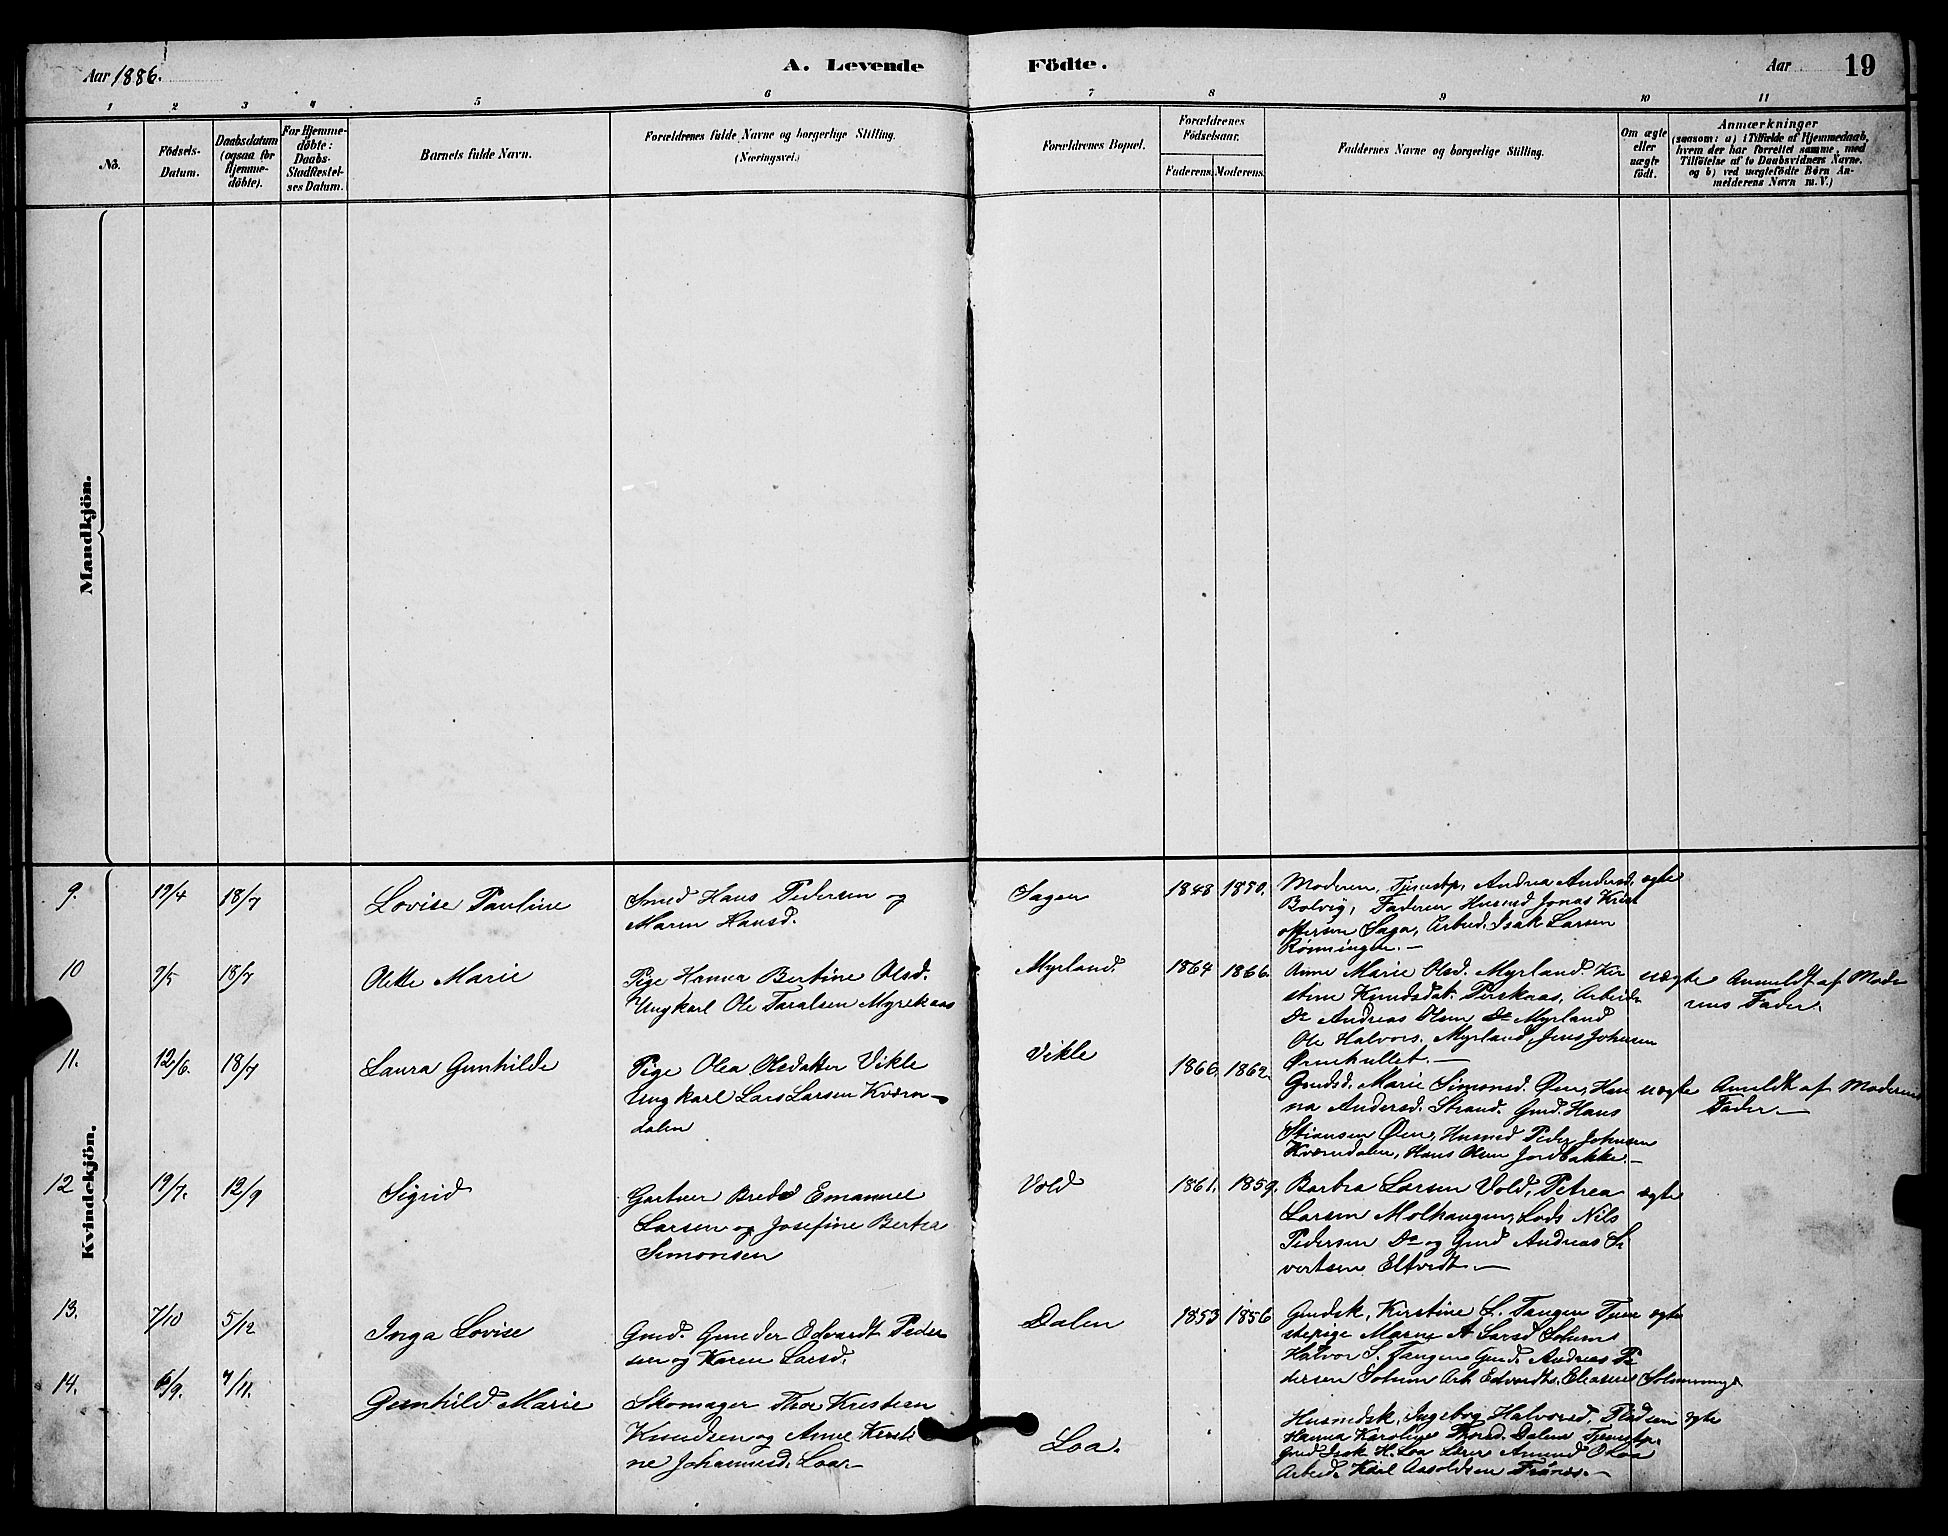 Aar 1886.
A. Levende Födte.
Aar
19
1 2 3 4 5 6 7 8 9 10 11
No.
Födsels-
Datum.
Daabsdatum
(ogsaa for
Hjemme-
döbte).
For Hjemme-
döbte:
Daabs-
Stadfestel-
ses Datum.
Barnets fulde Navn.
Forældrenes fulde Navne og borgerlige Stilling.
(Næringsvei.)
Forældrenes Bopæl.
Forældrenes
Födselsaar.
Faderens. Moderens.
Faddernes Navne og borgerlige Stilling.
Om ægte
eller
uægte
födt.
Anmærkninger
(saasom: a) i Tilfælde af Hjemmedaab,
hvem der har forrettet samme, med
Tilföielse af to Daabsvidners Navne.
og b) ved uægtefödte Börn An-
melderens Navn m.V.)
Mandkjön.
Kvindekjön.
9. 17/4 18/7
Lovise Pauline
Smed Hans Pedersen og
Maren Hansd.
Sagen
1848 1850.
Moderen, Tjenestp. Andrea Andersd.
Bolvig, Faderen Husmd Jonas Krist
offersen Saga, Arbeid. Isak Larsen
Rønningen.—
ægte
10 7/5 18/7
Olette Marie
Pige Hanna Bertine Olsd.
Ungkarl Ole Taralsen Myrekaas
Myrland
1864 1866.
Anne Marie Olsd. Myrland Kir
stine Knudsdat. Perskaas, Arbeid
Do Andreas Olsen Do Myrland
Ole Halvors. Myrland Jens Johnsen
Ørnekullet.—
uægte
Anmeldt af Mode
rens Fader.
11. 12/6. 18/7
Laura Gunhilde
Pige Olea Olsdatter Vikle
Ungkarl Lars Larsen Kværn-
dalen
Vikle
1866. 1862.
Gmdsd. Marie Simonsd. Øen, Han
na Andersd. Strand. Gmd. Hans
Stiansen Øen, Husmd Peder Johnsen
Kværndalen, Hans Olsen Jordbakke.—
uægte
Anmeldt af Moderens
Fader.—
12 19/7. 12/9
Sigrid
Gartner Brede Emanuel
Larsen og Josefine Bertea
Simonsen
Vold
1861. 1859.
Barbra Larsen Vold, Petrea
Larsen Molhaugen, Lods Nils
Pedersen Do og Gmd Andreas Si
vertsen Eltvedt.—
ægte
13. 7/10 5/12
Inga Lovise
Gmd. Gunder Edvardt Peder
sen og Karen Larsd.
Dalen
1853 1856
Gmdsk. Kirstine L. Tangen Tjene
stepige Maren A Larsd Solum
Halvor S. Tangen Gmd. Andreas Pe
dersen Solum Arb. Edvardt Eliasen
ægte
14. 6/9. 7/11.
Gunhild Marie
Skomager Thor Kristian
Knudsen og Anne Kirsti
ne Johannesd. Loa.—
Loa.
Husmdsk. Ingeborg Halvorsd.
Hanna Karoline Thorsd. Dalen Tjenstp.
Gmd Isak H. Loa Lærer Amund O Loa
Arbeid. Karl Aasoldsen
ægte